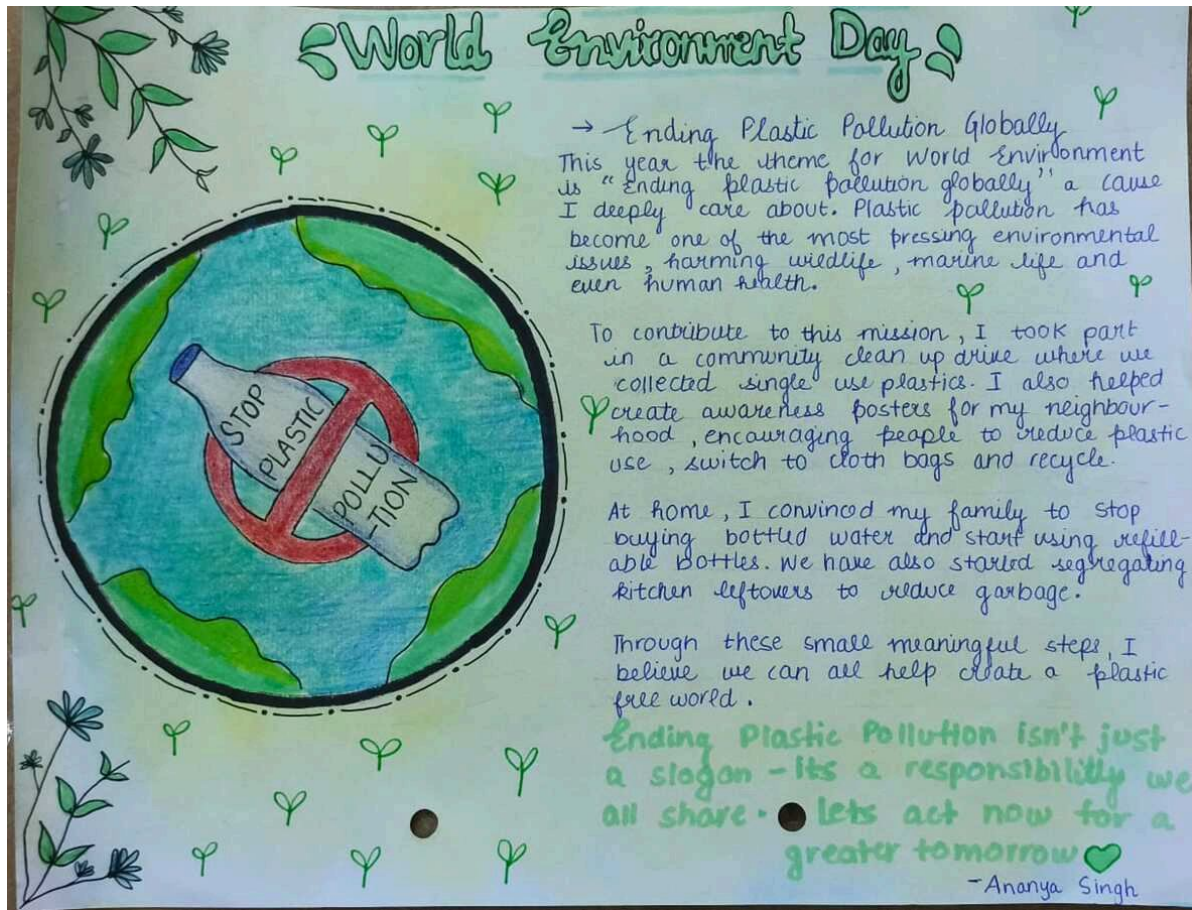 World Environment Day
STOP
PLASTIC
POLLU
-TION
→ Ending Plastic Pollution Globally
This year the theme for World Environment
is "Ending plastic pollution globally" a cause
I deeply care about. Plastic pollution has
become one of the most pressing environmental
issues, harming wildlife, marine life and
even human health.
To contribute to this mission, I took part
in a community clean up drive where we
collected single use plastics. I also helped
create awareness posters for my neighbour-
hood, encouraging people to reduce plastic
use, switch to cloth bags and recycle.
At home, I convinced my family to stop
buying bottled water and start using refill-
able bottles. We have also started segregating
kitchen leftovers to reduce garbage.
Through these small meaningful steps, I
believe we can all help create a plastic
free world.
Ending Plastic Pollution isn't just
a slogan - its a responsibility we
all share. lets act now for a
greater tomorrow
-Ananya Singh